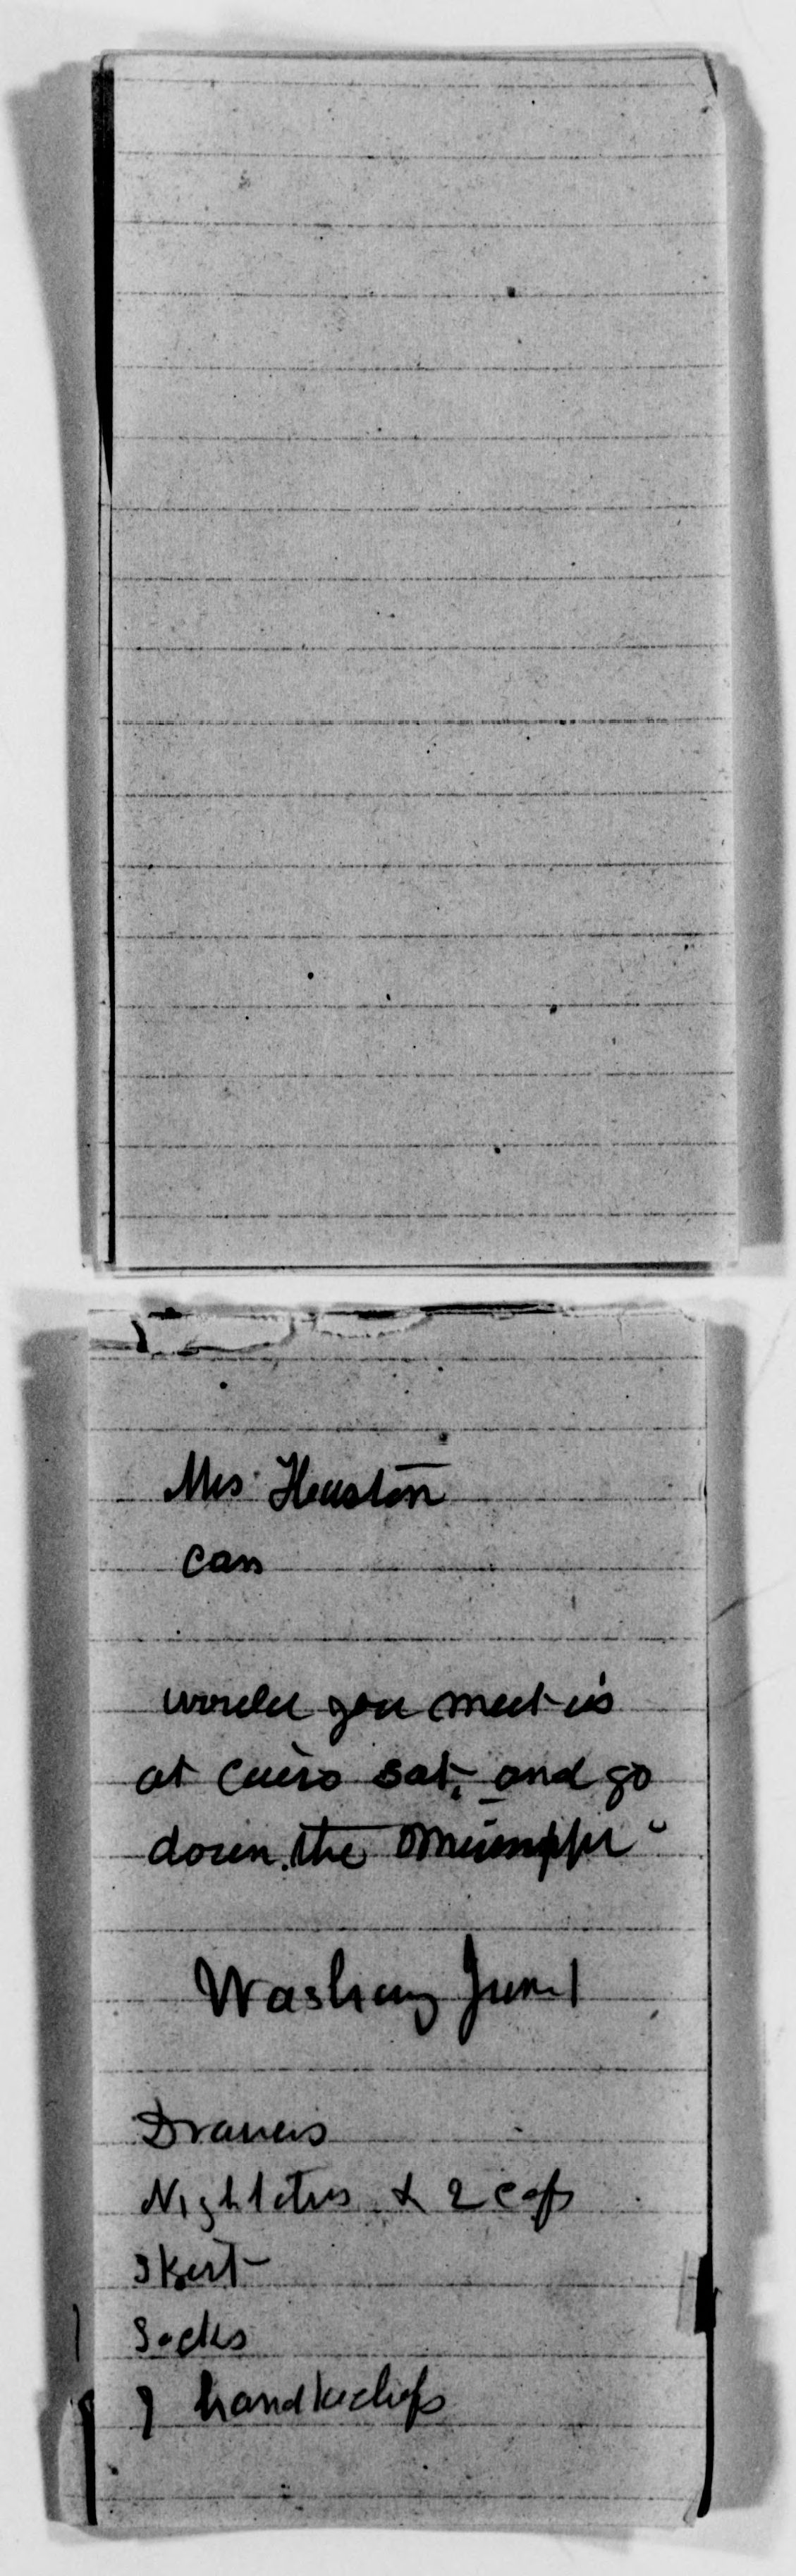 Mrs. Houston
Can
would you meet us
at Cairo Sat. and go
down the Mississippi"
Washing June 1
Drawers
Night & 2 caps
Skirt
Socks
7 handkechefs